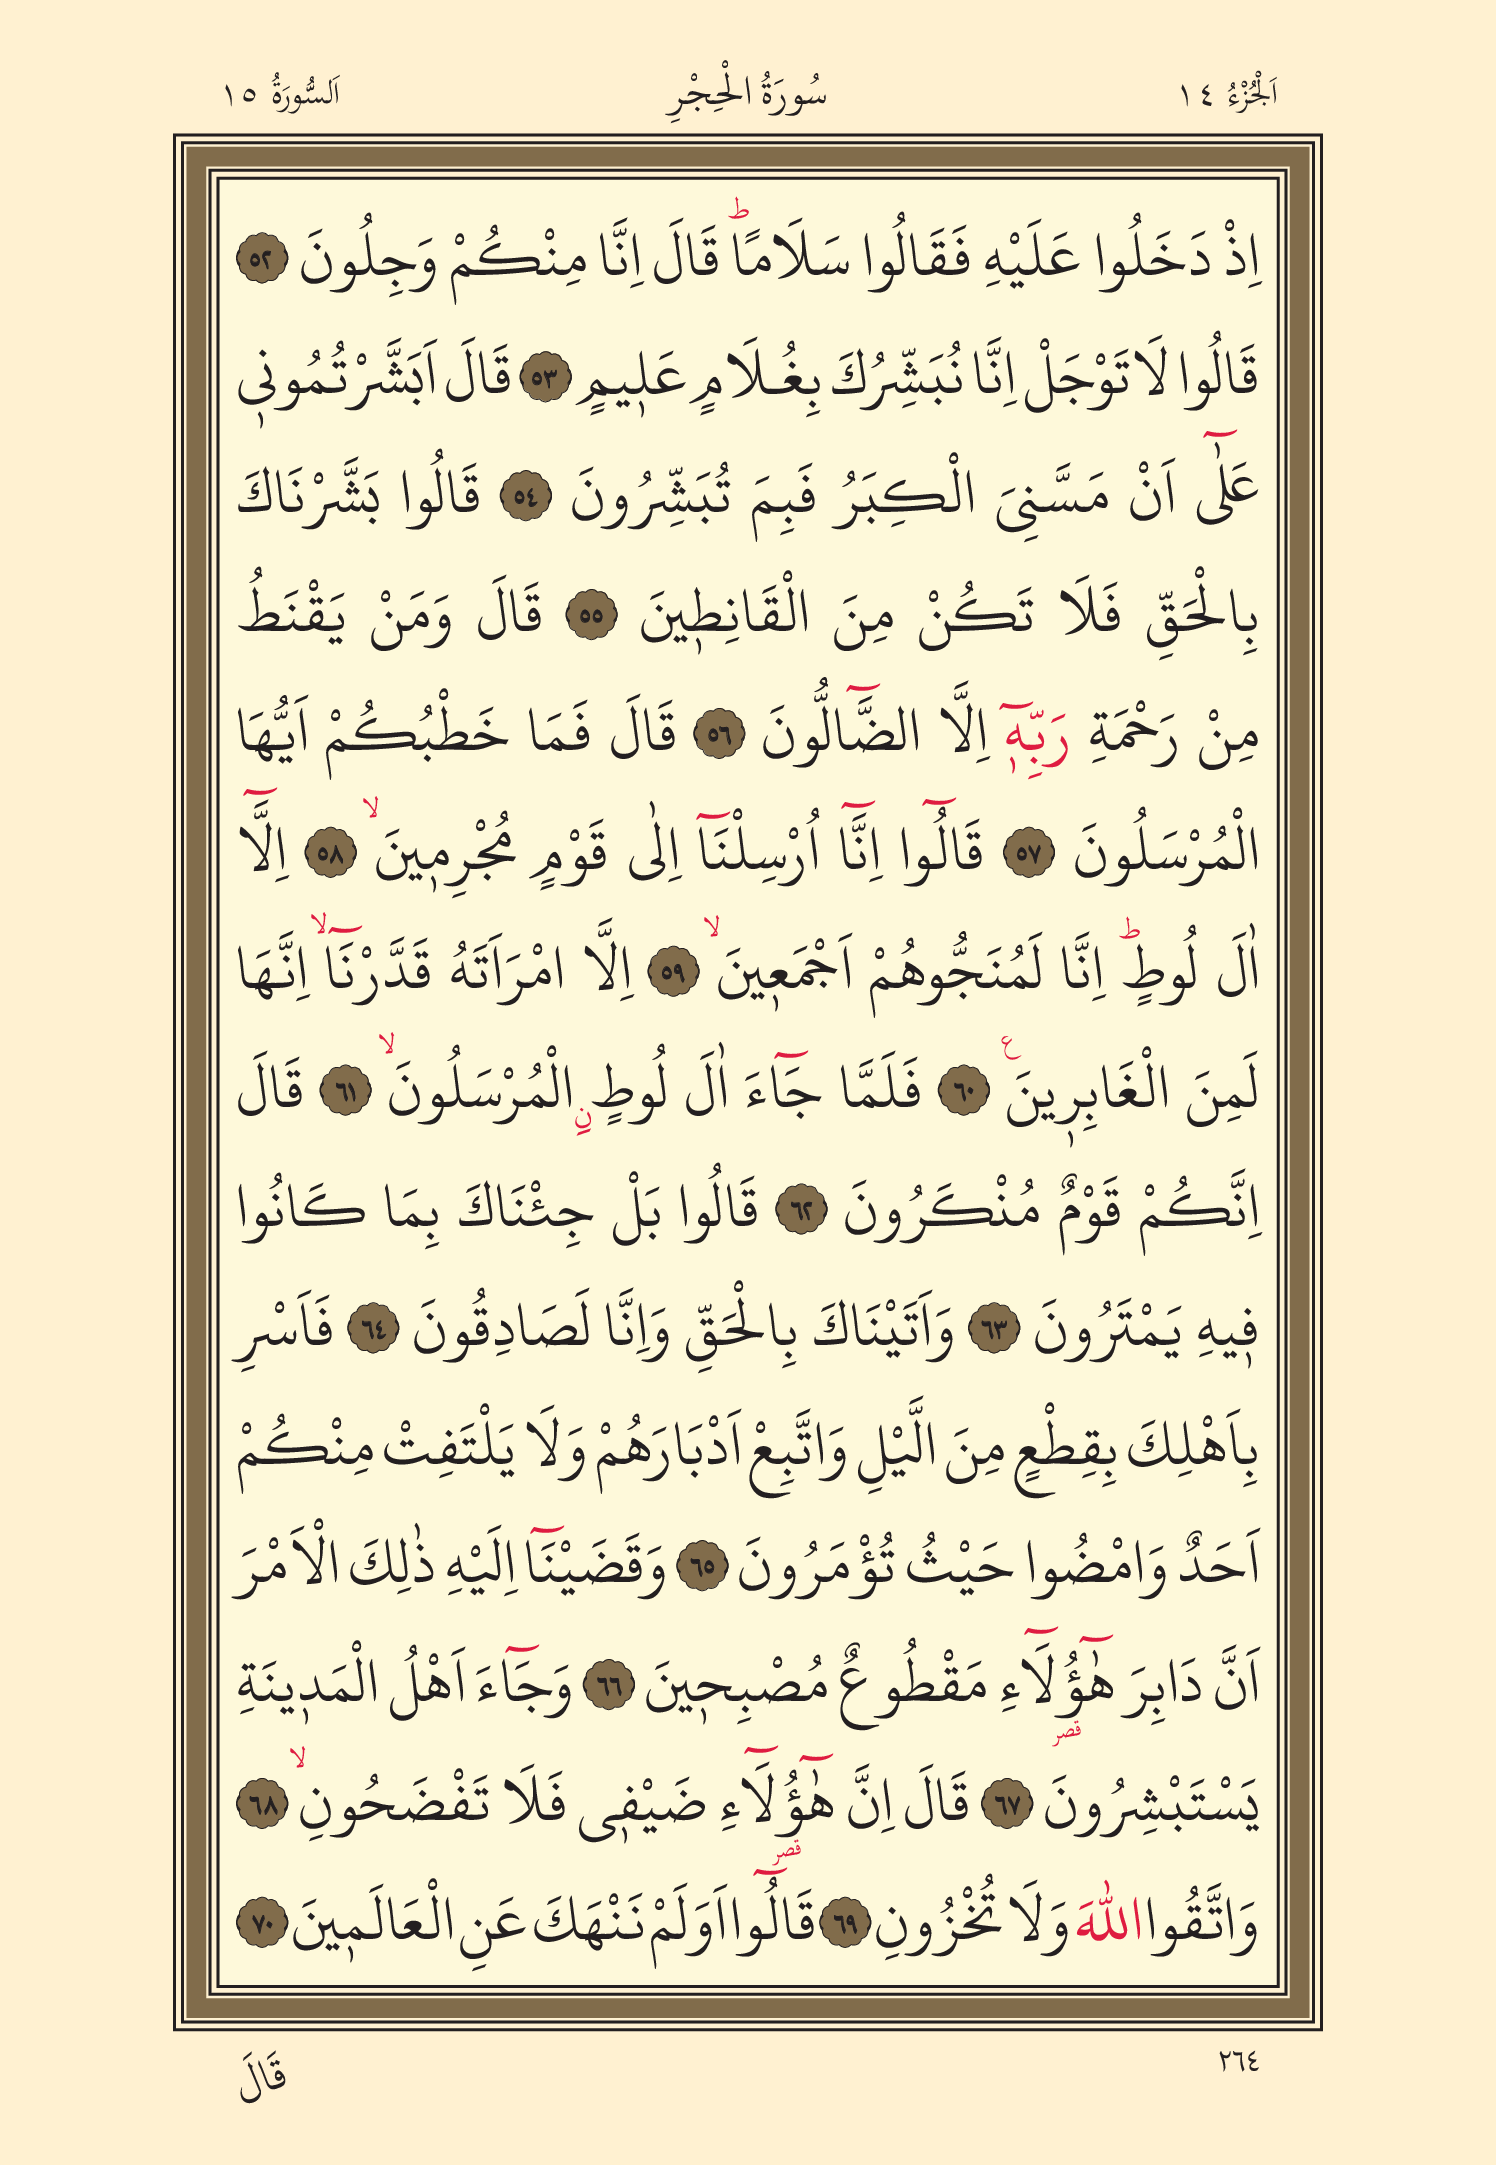 اَلْجُزْءُ ١٤
سُورَةُ الْحِجْرِ
اَلسُّورَةُ ١٥
اِذْ دَخَلُوا عَلَيْهِ فَقَالُوا سَلَامًاۜ قَالَ اِنَّا مِنْكُمْ وَجِلُونَ ٥٢
قَالُوا لَا تَوْجَلْ اِنَّا نُبَشِّرُكَ بِغُلَامٍ عَل۪يمٍ ٥٣ قَالَ اَبَشَّرْتُمُون۪ي
عَلٰٓى اَنْ مَسَّنِيَ الْكِبَرُ فَبِمَ تُبَشِّرُونَ ٥٤ قَالُوا بَشَّرْنَاكَ
بِالْحَقِّ فَلَا تَكُنْ مِنَ الْقَانِط۪ينَ ٥٥ قَالَ وَمَنْ يَقْنَطُ
مِنْ رَحْمَةِ رَبِّه۪ٓ اِلَّا الضَّٓالُّونَ ٥٦ قَالَ فَمَا خَطْبُكُمْ اَيُّهَا
الْمُرْسَلُونَ ٥٧ قَالُٓوا اِنَّٓا اُرْسِلْنَٓا اِلٰى قَوْمٍ مُجْرِم۪ينَۙ ٥٨ اِلَّٓا
اٰلَ لُوطٍۜ اِنَّا لَمُنَجُّوهُمْ اَجْمَع۪ينَۙ ٥٩ اِلَّا امْرَاَتَهُ قَدَّرْنَٓاۙ اِنَّهَا
لَمِنَ الْغَابِر۪ينَ۟ ٦٠ فَلَمَّا جَٓاءَ اٰلَ لُوطٍۨ الْمُرْسَلُونَۙ ٦١ قَالَ
اِنَّكُمْ قَوْمٌ مُنْكَرُونَ ٦٢ قَالُوا بَلْ جِئْنَاكَ بِمَا كَانُوا
ف۪يهِ يَمْتَرُونَ ٦٣ وَاَتَيْنَاكَ بِالْحَقِّ وَاِنَّا لَصَادِقُونَ ٦٤ فَاَسْرِ
بِاَهْلِكَ بِقِطْعٍ مِنَ الَّيْلِ وَاتَّبِعْ اَدْبَارَهُمْ وَلَا يَلْتَفِتْ مِنْكُمْ
اَحَدٌ وَامْضُوا حَيْثُ تُؤْمَرُونَ ٦٥ وَقَضَيْنَٓا اِلَيْهِ ذٰلِكَ الْاَمْرَ
اَنَّ دَابِرَ هٰٓؤُ۬لَٓاءِ مَقْطُوعٌ مُصْبِح۪ينَ ٦٦ وَجَٓاءَ اَهْلُ الْمَد۪ينَةِ
قصر
يَسْتَبْشِرُونَ ٦٧ قَالَ اِنَّ هٰٓؤُ۬لَٓاءِ ضَيْف۪ي فَلَا تَفْضَحُونِۙ ٦٨
قصر
وَاتَّقُوا اللّٰهَ وَلَا تُخْزُونِ ٦٩ قَالُٓوا اَوَلَمْ نَنْهَكَ عَنِ الْعَالَم۪ينَ ٧٠
٢٦٤
قَالَ